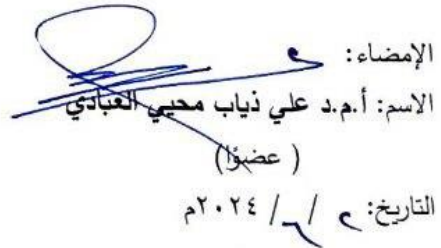 الإمضاء:
الاسم: أ.م.د علي ذياب محيي العبادي
( عضوًا)
التاريخ: / / ٢٠٢٤م